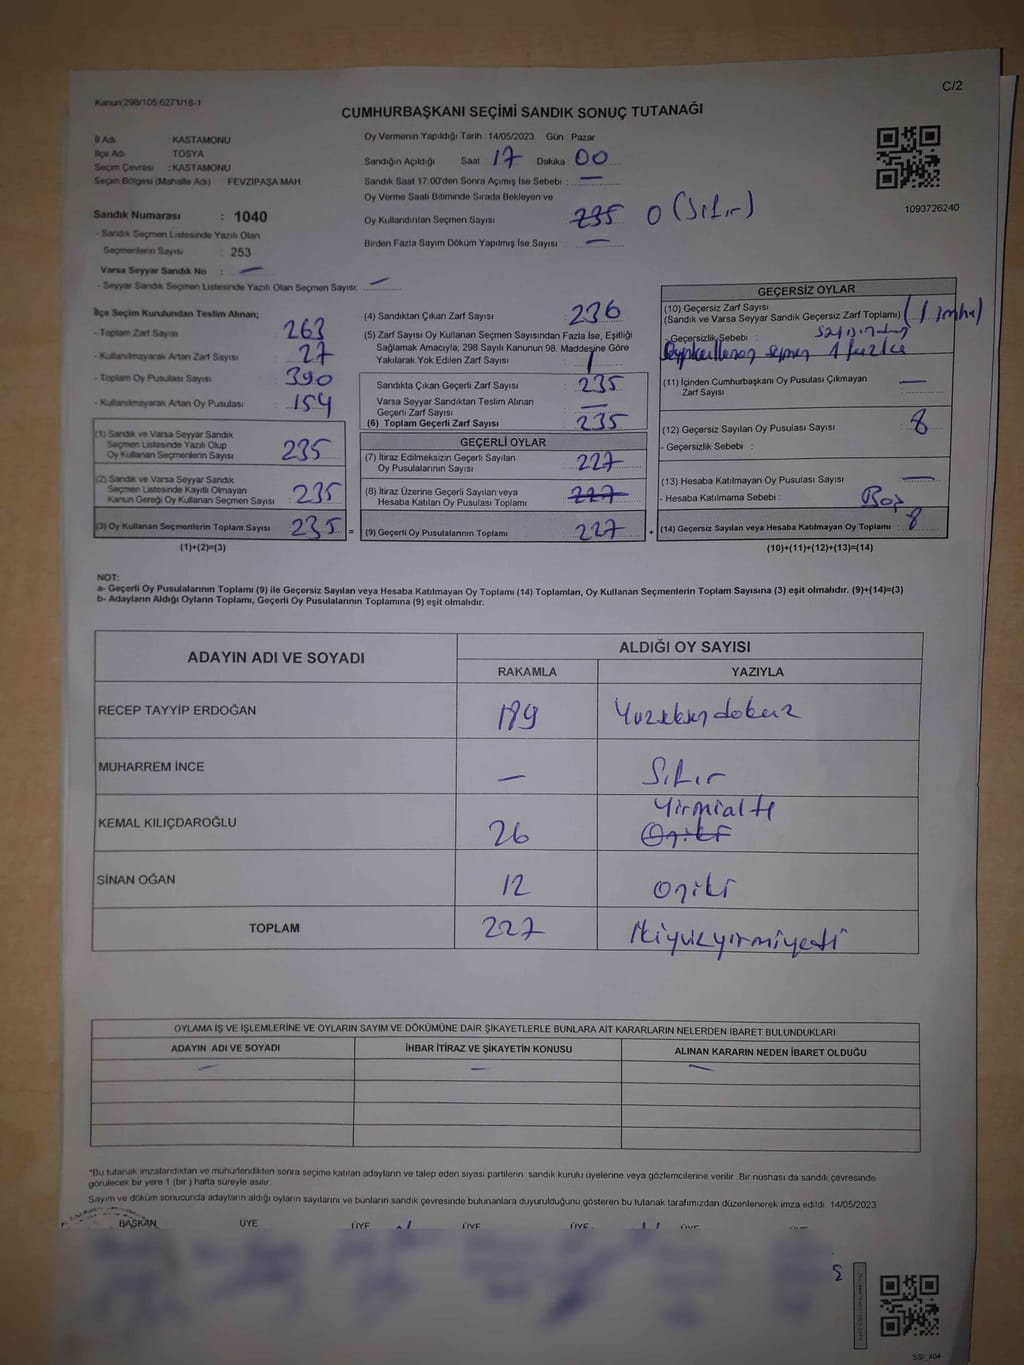 C/2
Kanun:298/105,6271/16-1
CUMHURBAŞKANI SEÇİMİ SANDIK SONUÇ TUTANAĞI
İl Adı : KASTAMONU
İlçe Adı : TOSYA
Seçim Çevresi : KASTAMONU
Seçim Bölgesi (Mahalle Adı) FEVZİPAŞA MAH.
Sandık Numarası : 1040
- Sandık Seçmen Listesinde Yazılı Olan
Seçmenlerin Sayısı : 253
Varsa Seyyar Sandık No : —
- Seyyar Sandık Seçmen Listesinde Yazılı Olan Seçmen Sayısı: —
Oy Vermenin Yapıldığı Tarih : 14/05/2023 Gün : Pazar
Sandığın Açıldığı Saat 17 Dakika 00
Sandık Saat 17:00'den Sonra Açılmış İse Sebebi : —
Oy Verme Saati Bitiminde Sırada Bekleyen ve
Oy Kullandırılan Seçmen Sayısı 235 0 (Sıfır)
Birden Fazla Sayım Döküm Yapılmış İse Sayısı : —
1093726240
İlçe Seçim Kurulundan Teslim Alınan;
- Toplam Zarf Sayısı : 263
- Kullanılmayarak Artan Zarf Sayısı : 27
- Toplam Oy Pusulası Sayısı : 390
- Kullanılmayarak Artan Oy Pusulası : 154
(1) Sandık ve Varsa Seyyar Sandık
Seçmen Listesinde Yazılı Olup
Oy Kullanan Seçmenlerin Sayısı : 235
(2) Sandık ve Varsa Seyyar Sandık
Seçmen Listesinde Kayıtlı Olmayan
Kanun Gereği Oy Kullanan Seçmen Sayısı : 235
(3) Oy Kullanan Seçmenlerin Toplam Sayısı : 235 =
(1)+(2)=(3)
(4) Sandıktan Çıkan Zarf Sayısı : 236
(5) Zarf Sayısı Oy Kullanan Seçmen Sayısından Fazla İse, Eşitliği
Sağlamak Amacıyla, 298 Sayılı Kanunun 98. Maddesine Göre
Yakılarak Yok Edilen Zarf Sayısı : 1
Sandıkta Çıkan Geçerli Zarf Sayısı : 235
Varsa Seyyar Sandıktan Teslim Alınan
Geçerli Zarf Sayısı : —
(6) Toplam Geçerli Zarf Sayısı : 235
GEÇERLİ OYLAR
(7) İtiraz Edilmeksizin Geçerli Sayılan
Oy Pusulalarının Sayısı : 227
(8) İtiraz Üzerine Geçerli Sayılan veya
Hesaba Katılan Oy Pusulası Toplamı : 227
(9) Geçerli Oy Pusulalarının Toplamı : 227 +
GEÇERSİZ OYLAR
(10) Geçersiz Zarf Sayısı
(Sandık ve Varsa Seyyar Sandık Geçersiz Zarf Toplamı) : (1 imha)
- Geçersizlik Sebebi : sayısından
seçmen 1 fazla
(11) İçinden Cumhurbaşkanı Oy Pusulası Çıkmayan
Zarf Sayısı : —
(12) Geçersiz Sayılan Oy Pusulası Sayısı : 8
- Geçersizlik Sebebi :
(13) Hesaba Katılmayan Oy Pusulası Sayısı : —
- Hesaba Katılmama Sebebi : Boş
(14) Geçersiz Sayılan veya Hesaba Katılmayan Oy Toplamı : 8
(10)+(11)+(12)+(13)=(14)
NOT:
a- Geçerli Oy Pusulalarının Toplamı (9) ile Geçersiz Sayılan veya Hesaba Katılmayan Oy Toplamı (14) Toplamları, Oy Kullanan Seçmenlerin Toplam Sayısına (3) eşit olmalıdır. (9)+(14)=(3)
b- Adayların Aldığı Oyların Toplamı, Geçerli Oy Pusulalarının Toplamına (9) eşit olmalıdır.
ADAYIN ADI VE SOYADI ALDIĞI OY SAYISI
RAKAMLA YAZIYLA
RECEP TAYYİP ERDOĞAN 189 Yüzseksendokuz
MUHARREM İNCE — Sıfır
KEMAL KILIÇDAROĞLU 26 Yirmialtı Oniki
SİNAN OĞAN 12 oniki
TOPLAM 227 İkiyüzyirmiyedi
OYLAMA İŞ VE İŞLEMLERİNE VE OYLARIN SAYIM VE DÖKÜMÜNE DAİR ŞİKAYETLERLE BUNLARA AİT KARARLARIN NELERDEN İBARET BULUNDUKLARI
ADAYIN ADI VE SOYADI İHBAR İTİRAZ VE ŞİKAYETİN KONUSU ALINAN KARARIN NEDEN İBARET OLDUĞU
— — —
*Bu tutanak imzalandıktan ve mühürlendikten sonra seçime katılan adayların ve talep eden siyasi partilerin sandık kurulu üyelerine veya gözlemcilerine verilir. Bir nüshası da sandık çevresinde
görülecek bir yere 1 (bir ) hafta süreyle asılır.
Sayım ve döküm sonucunda adayların aldığı oyların sayılarını ve bunların sandık çevresinde bulunanlara duyurulduğunu gösteren bu tutanak tarafımızdan düzenlenerek imza edildi. 14/05/2023
BAŞKAN ÜYE ÜYE ÜYE ÜYE ÜYE
SSI_404